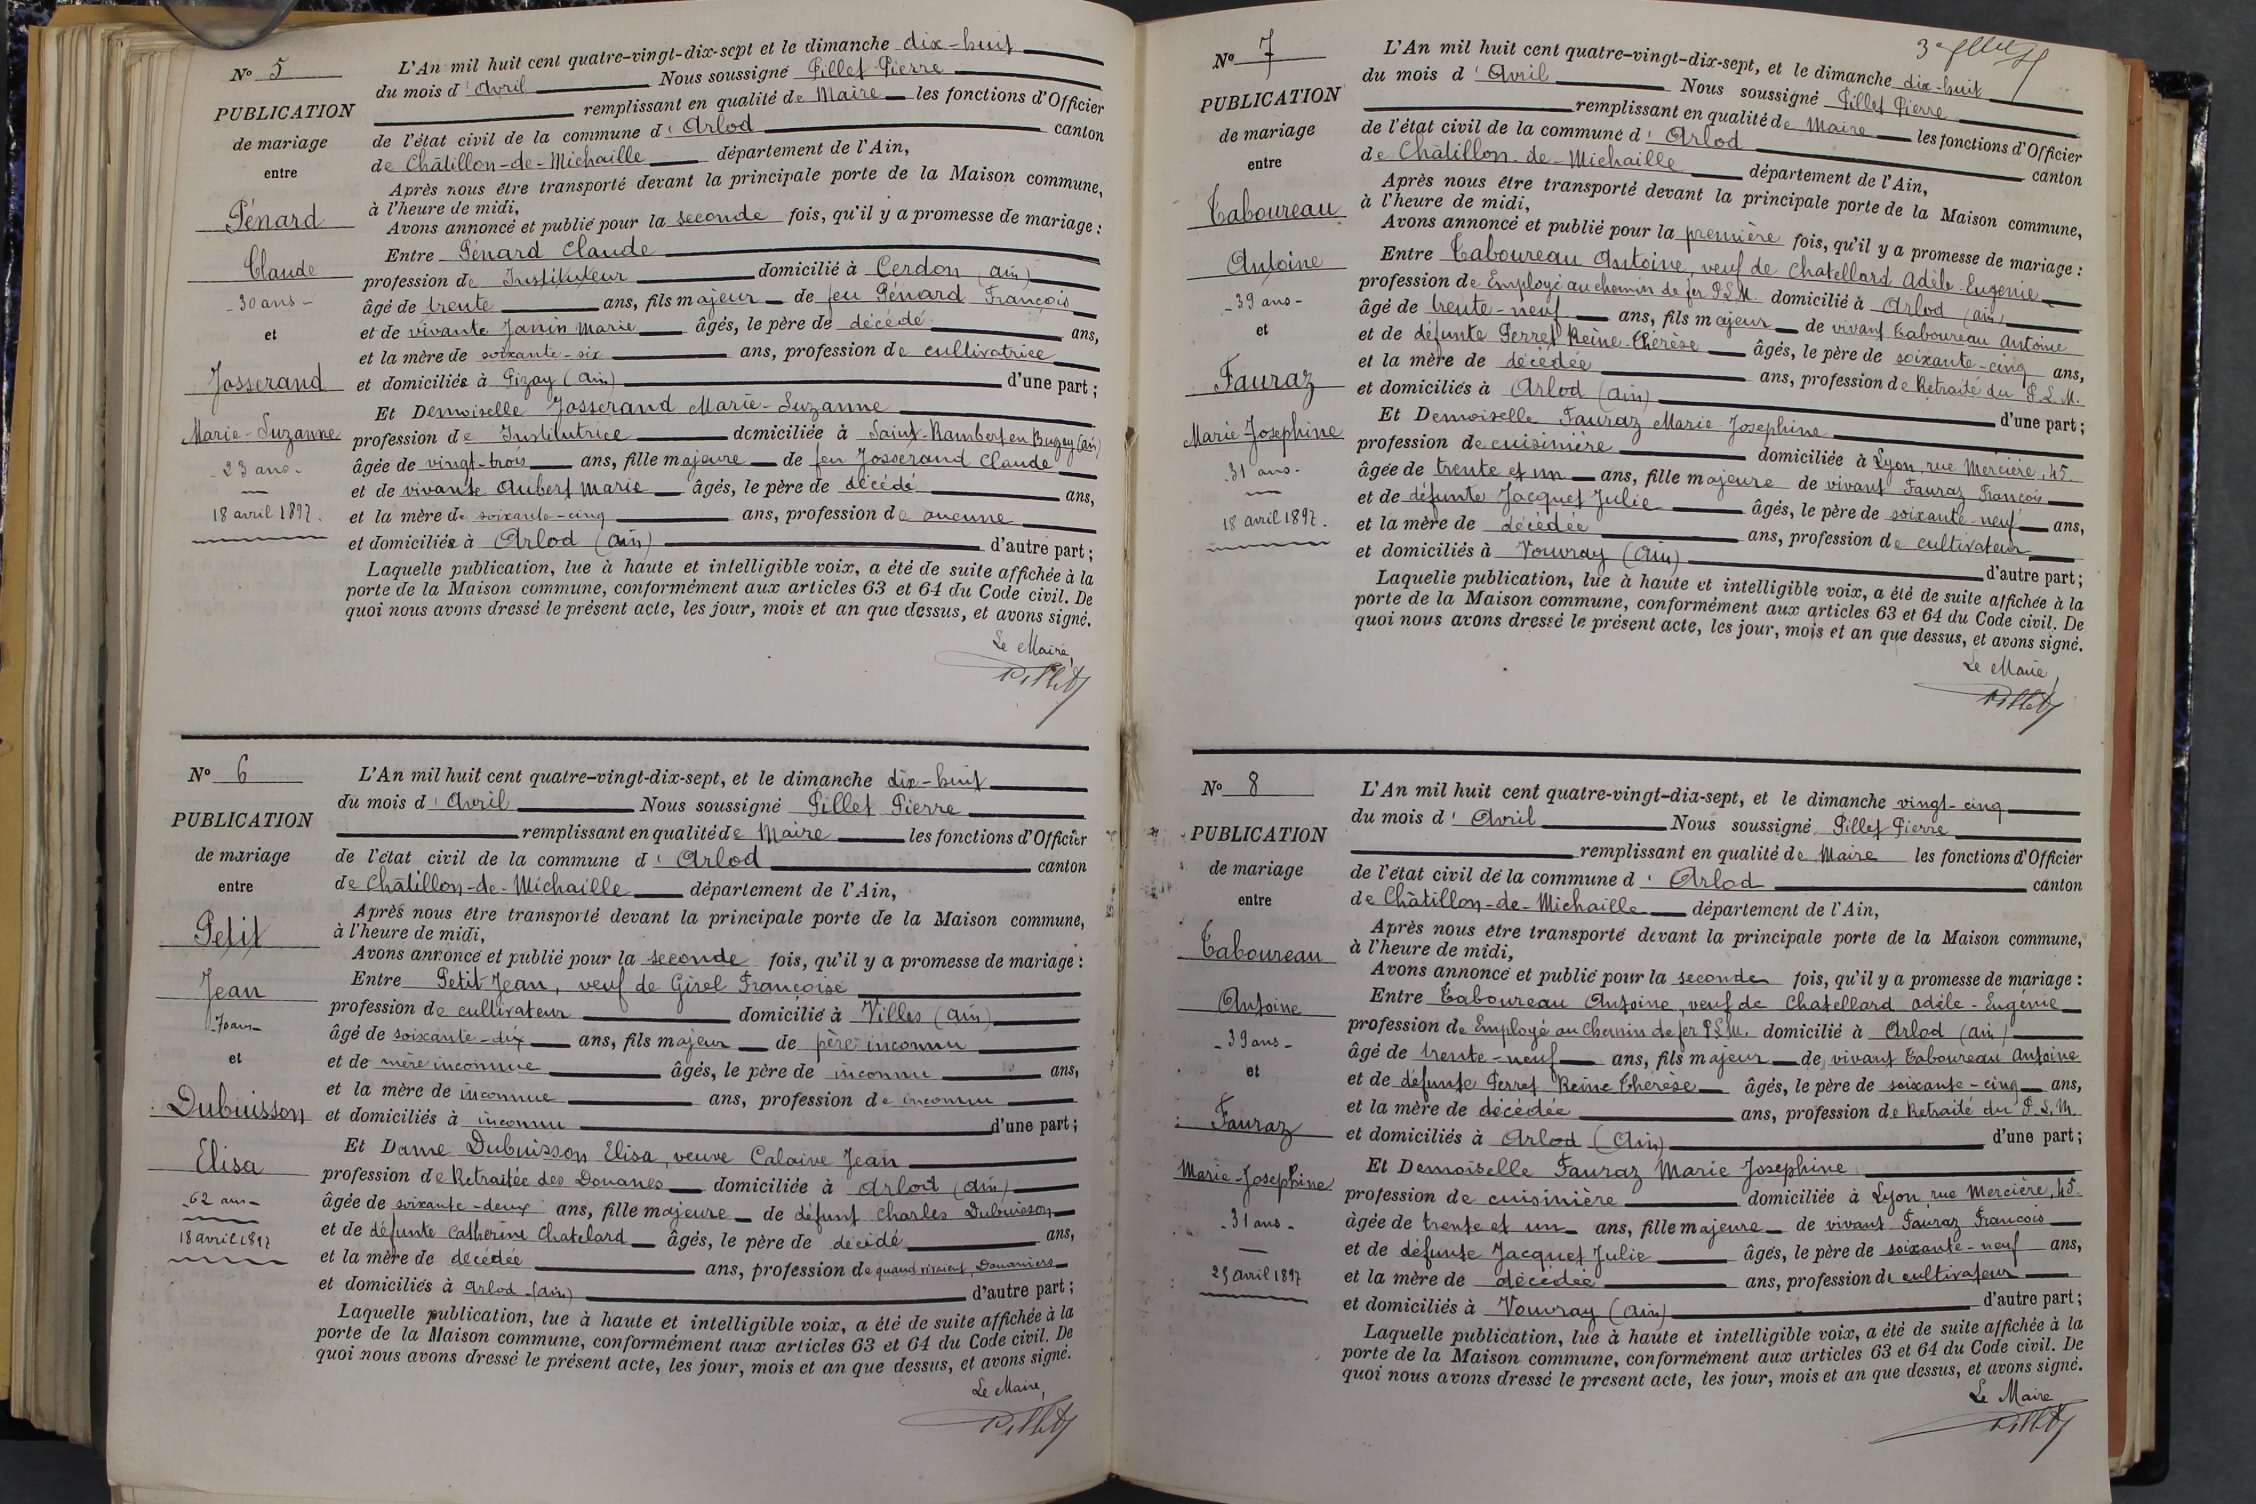 N° 5
PUBLICATION
de mariage
entre
Pénard
Claude
- 30 ans -
et
Josserand
Marie-Suzanne
- 23 ans -
18 avril 1897.
L'An mil huit cent quatre-vingt-dix-sept et le dimanche dix-huit
du mois d'Avril Nous soussigné Pillet Pierre
remplissant en qualité de Maire les fonctions d'Officier
de l'état civil de la commune d'Arlod canton
de Châtillon-de-Michaille département de l'Ain,
Après nous être transporté devant la principale porte de la Maison commune,
à l'heure de midi,
Avons annoncé et publié pour la seconde fois, qu'il y a promesse de mariage :
Entre Pénard Claude
profession de Instituteur domicilié à Cerdon (ain)
âgé de trente ans, fils majeur de feu Pénard François
et de vivante Janin Marie âgés, le père de décédé ans,
et la mère de soixante-six ans, profession de cultivatrice
et domiciliés à Pizay (ain) d'une part ;
Et Demoiselle Josserand Marie-Suzanne
profession de Institutrice domiciliée à Saint-Rambert en Bugey (ain)
âgée de vingt-trois ans, fille majeure de feu Josserand Claude
et de vivante Aubert Marie âgés, le père de décédé ans,
et la mère de soixante-cinq ans, profession de aucune
et domiciliés à Arlod (ain) d'autre part ;
Laquelle publication, lue à haute et intelligible voix, a été de suite affichée à la
porte de la Maison commune, conformément aux articles 63 et 64 du Code civil. De
quoi nous avons dressé le présent acte, les jour, mois et an que dessus, et avons signé.
Le Maire,
Pillet
N° 6
PUBLICATION
de mariage
entre
Petit
Jean
70 ans -
et
Dubuisson
Elisa
- 62 ans -
18 avril 1897
L'An mil huit cent quatre-vingt-dix-sept, et le dimanche dix-huit
du mois d'Avril Nous soussigné Pillet Pierre
remplissant en qualité de Maire les fonctions d'Officier
de l'état civil de la commune d'Arlod canton
de Châtillon-de-Michaille département de l'Ain,
Après nous être transporté devant la principale porte de la Maison commune,
à l'heure de midi,
Avons annoncé et publié pour la seconde fois, qu'il y a promesse de mariage :
Entre Petit Jean, veuf de Girel Françoise
profession de cultivateur domicilié à Villes (ain)
âgé de soixante-dix ans, fils majeur de père inconnu
et de mère inconnue âgés, le père de inconnu ans,
et la mère de inconnue ans, profession de inconnu
et domiciliés à inconnu d'une part ;
Et Dame Dubuisson Elisa, veuve Calaive Jean
profession de Retraitée des Douanes domiciliée à Arlod (ain)
âgée de soixante-deux ans, fille majeure de défunt Charles Dubuisson
et de défunte Catherine Chatelard âgés, le père de décédé ans,
et la mère de décédée ans, profession de quand vivaient, Douaniers
et domiciliés à Arlod (ain) d'autre part ;
Laquelle publication, lue à haute et intelligible voix, a été de suite affichée à la
porte de la Maison commune, conformément aux articles 63 et 64 du Code civil. De
quoi nous avons dressé le présent acte, les jour, mois et an que dessus, et avons signé.
Le Maire,
Pillet
N° 7
PUBLICATION
de mariage
entre
Taboureau
Antoine
- 39 ans -
et
Fauraz
Marie-Josephine
- 31 ans -
18 avril 1897.
3e
L'An mil huit cent quatre-vingt-dix-sept, et le dimanche dix-huit
du mois d'Avril Nous soussigné Pillet Pierre
remplissant en qualité de Maire les fonctions d'Officier
de l'état civil de la commune d'Arlod canton
de Châtillon-de-Michaille département de l'Ain,
Après nous être transporté devant la principale porte de la Maison commune,
à l'heure de midi,
Avons annoncé et publié pour la première fois, qu'il y a promesse de mariage :
Entre Taboureau Antoine, veuf de Chatellard Adèle-Eugénie
profession de Employé au chemin de fer P.L.M. domicilié à Arlod (ain)
âgé de trente-neuf ans, fils majeur de vivant Taboureau Antoine
et de défunte Perret Reine-Thérèse âgés, le père de soixante-cinq ans,
et la mère de décédée ans, profession de Retraité du P.L.M.
et domiciliés à Arlod (ain) d'une part ;
Et Demoiselle Fauraz Marie Josephine
profession de cuisinière domiciliée à Lyon, rue Mercière, 45.
âgée de trente et un ans, fille majeure de vivant Fauraz François
et de défunte Jacquet Julie âgés, le père de soixante-neuf ans,
et la mère de décédée ans, profession de cultivateur
et domiciliés à Vouvray (ain) d'autre part ;
Laquelle publication, lue à haute et intelligible voix, a été de suite affichée à la
porte de la Maison commune, conformément aux articles 63 et 64 du Code civil. De
quoi nous avons dressé le présent acte, les jour, mois et an que dessus, et avons signé.
Le Maire,
Pillet
N° 8
PUBLICATION
de mariage
entre
Taboureau
Antoine
- 39 ans -
et
Fauraz
Marie-Josephine
- 31 ans -
25 avril 1897
L'An mil huit cent quatre-vingt-dix-sept, et le dimanche vingt-cinq
du mois d'Avril Nous soussigné Pillet Pierre
remplissant en qualité de Maire les fonctions d'Officier
de l'état civil de la commune d'Arlod canton
de Châtillon-de-Michaille département de l'Ain,
Après nous être transporté devant la principale porte de la Maison commune,
à l'heure de midi,
Avons annoncé et publié pour la seconde fois, qu'il y a promesse de mariage :
Entre Taboureau Antoine, veuf de Chatellard Adèle-Eugénie
profession de Employé au Chemin de fer P.L.M. domicilié à Arlod (ain)
âgé de trente-neuf ans, fils majeur de vivant Taboureau Antoine
et de défunte Perret Reine Thérèse âgés, le père de soixante-cinq ans,
et la mère de décédée ans, profession de Retraité du P.L.M.
et domiciliés à Arlod (Ain) d'une part ;
Et Demoiselle Fauraz Marie Josephine
profession de cuisinière domiciliée à Lyon rue Mercière, 45.
âgée de trente et un ans, fille majeure de vivant Fauraz François
et de défunte Jacquet Julie âgés, le père de soixante-neuf ans,
et la mère de décédée ans, profession de cultivateur
et domiciliés à Vouvray (ain) d'autre part ;
Laquelle publication, lue à haute et intelligible voix, a été de suite affichée à la
porte de la Maison commune, conformément aux articles 63 et 64 du Code civil. De
quoi nous avons dressé le présent acte, les jour, mois et an que dessus, et avons signé.
Le Maire
Pillet